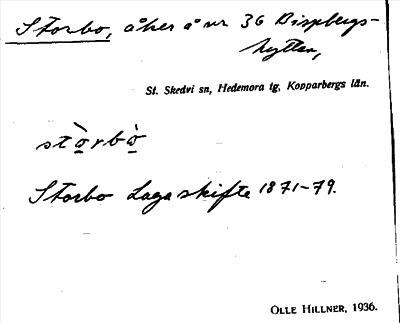 Storbo, åker å nr 36 Bispbergs-
hyttan,
St. Skedvi sn, Hedemora tg, Kopparbergs län.
stò̱rbò̱
Storbo Laga skifte 1871-79.
OLLE HILLNER, 1936.